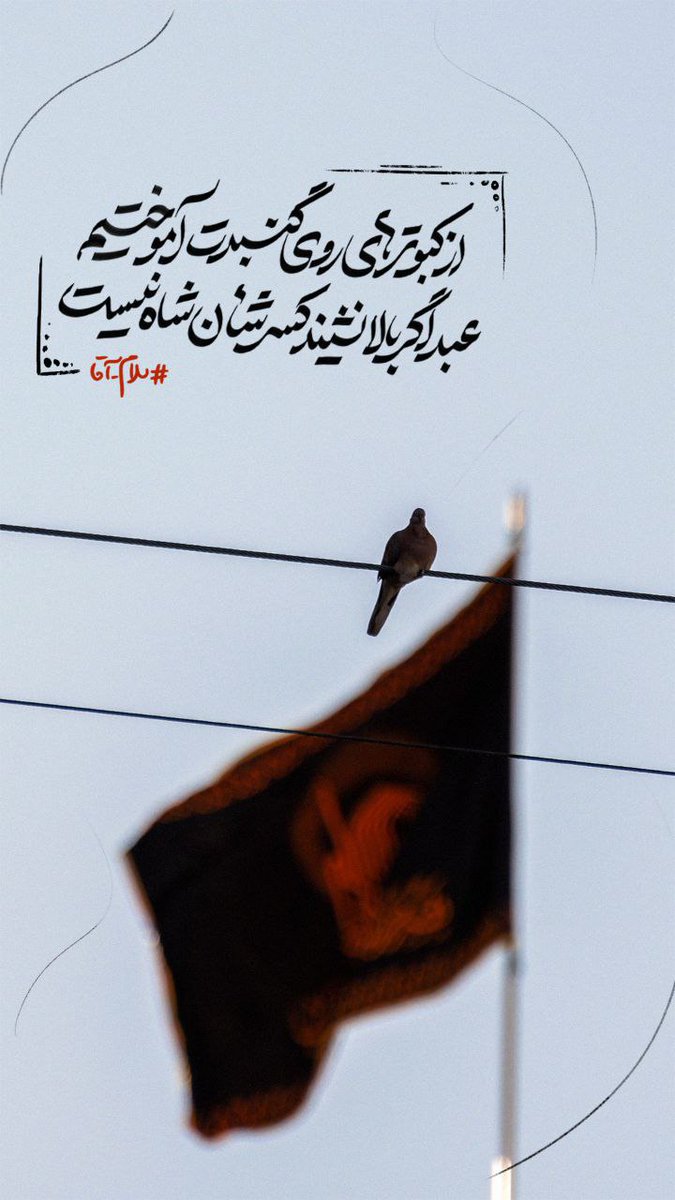 از کبوترهای روی گنبدت آموختیم
عبد اگر بالا نشیند کسر شأن شاه نیست
#سلام_آقا